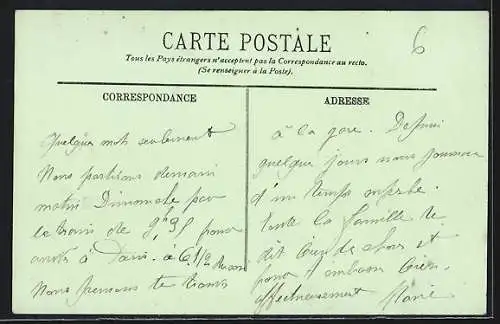 CARTE POSTALE
6
Tous les Pays étrangers n'acceptent pas la Correspondance au recto.
(Se renseigner à la Poste).
CORRESPONDANCE
Quelques mots seulement
Nous partirons demain
matin Dimanche par
le train de 9h35 pour
à Paris à 6 1/2
Nous le train
ADRESSE
à la gare. Depuis
quelques jours nous jouissons
d'un temps superbe.
toute la famille te
dit bien de choses et
pour t'embrasse bien
affectueusement Marie